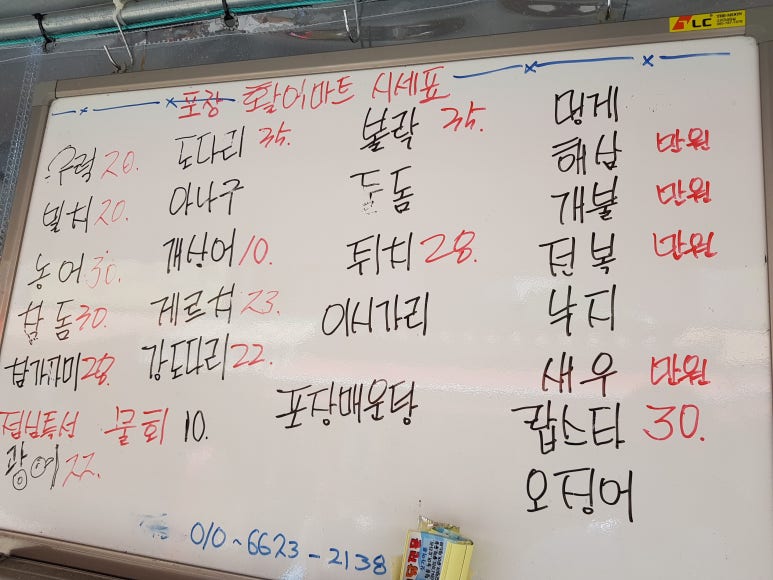 포장 활어마트 시세표
우럭 20.
넙치 20.
농어 30.
참돔 30.
참가자미 28.
점심특선 물회 10.
광어 22.
도다리 35.
아나구
개상어 10.
게르치 23.
강도다리 22.
볼락 35.
돌돔
쥐치 28.
이시가리
포장매운탕
멍게
해삼 만원
개불 만원
전복 만원
낙지
새우 만원
랍스타 30.
오징어
010-6623-2138
LC